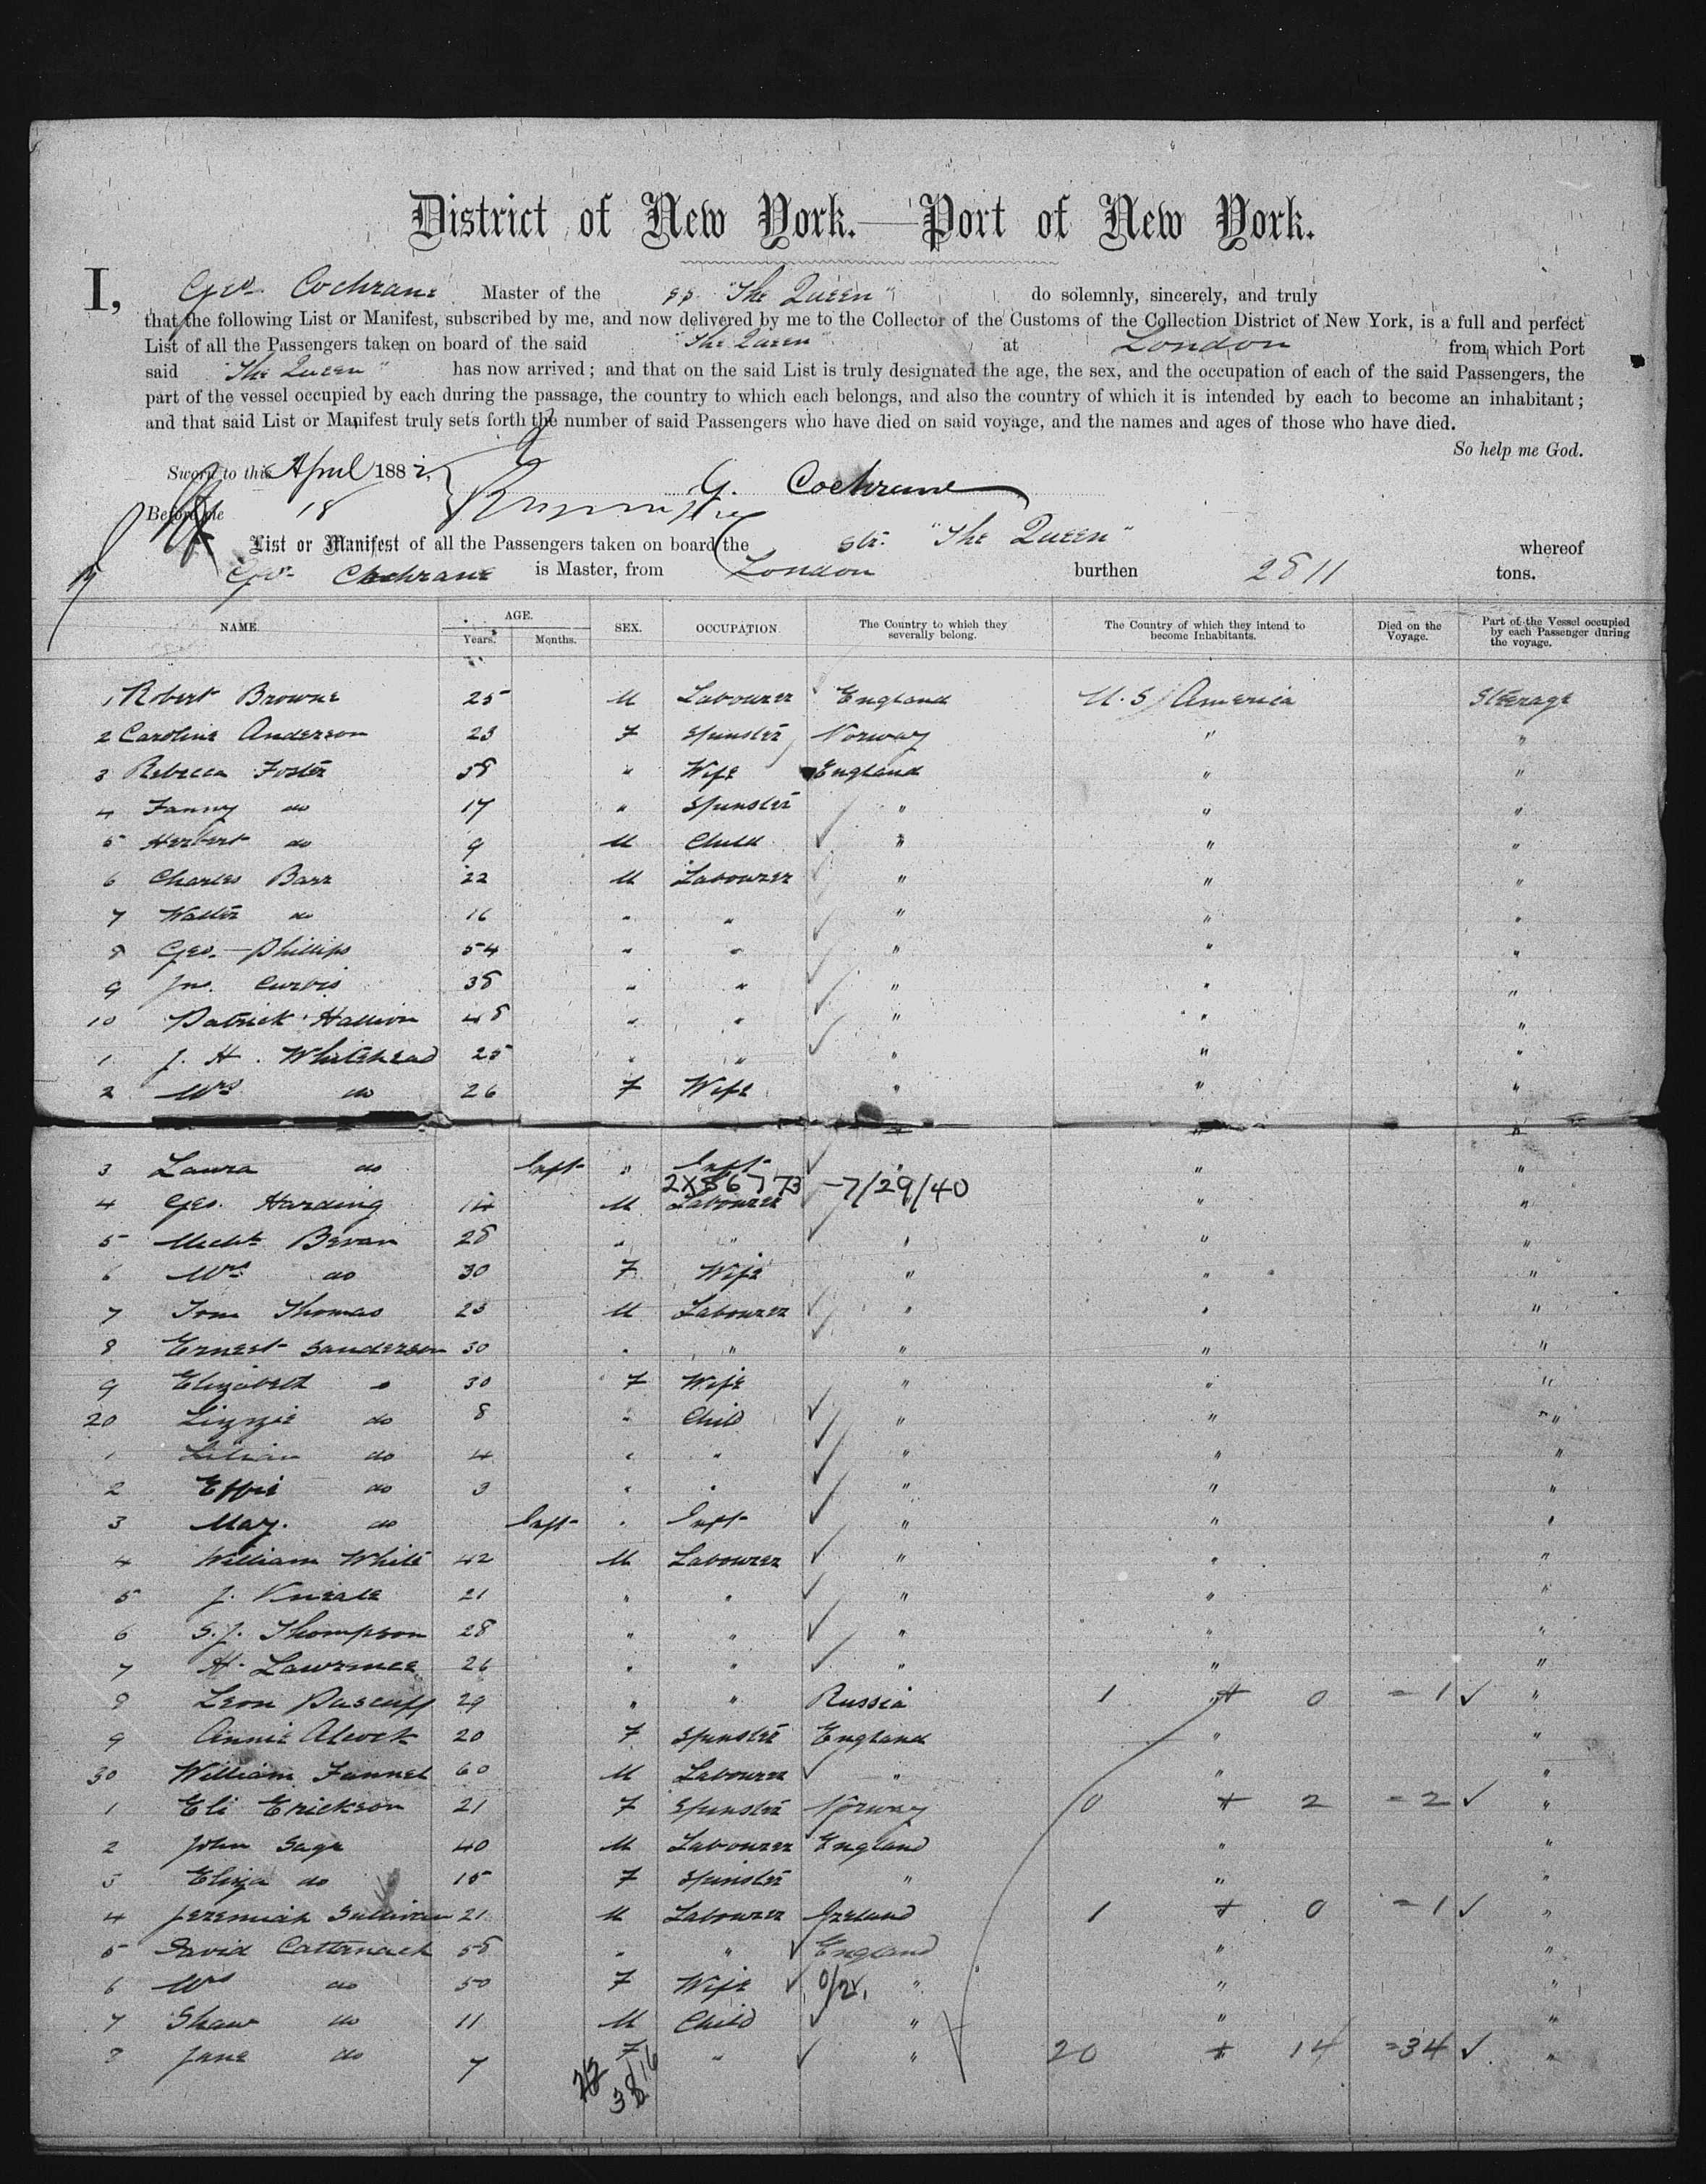 District of New York.—Port of New York.
I, Geo. Cochrane Master of the ss "The Queen" do solemnly, sincerely, and truly
that the following List or Manifest, subscribed by me, and now delivered by me to the Collector of the Customs of the Collection District of New York, is a full and perfect
List of all the Passengers taken on board of the said "The Queen" at London from which Port
said "The Queen" has now arrived; and that on the said List is truly designated the age, the sex, and the occupation of each of the said Passengers, the
part of the vessel occupied by each during the passage, the country to which each belongs, and also the country of which it is intended by each to become an inhabitant;
and that said List or Manifest truly sets forth the number of said Passengers who have died on said voyage, and the names and ages of those who have died.
So help me God.
Sworn to this April 1882,
G. Cochrane
Before me 18
List or Manifest of all the Passengers taken on board the str. "The Queen" whereof
Geo. Cochrane is Master, from London burthen 2811 tons.
NAME. AGE. Years. Months. SEX. OCCUPATION. The Country to which they severally belong. The Country of which they intend to become Inhabitants. Died on the Voyage. Part of the Vessel occupied by each Passenger during the voyage.
1 Robert Browne 25 M Labourer England U.S. America Steerage
2 Caroline Anderson 23 F Spinster Norway " "
3 Rebecca Foster 38 " Wife England " "
4 Fanny do 17 " Spinster " " "
5 Herbert do 9 M Child " " "
6 Charles Barr 22 M Labourer " " "
7 Walter do 16 " " " " "
8 Geo. Phillips 54 " " " " "
9 Jno. Curtis 38 " " " " "
10 Patrick Hallion 48 " " " " "
1 J. H. Whitehead 25 " " " " "
2 Mrs do 26 F Wife " " "
3 Laura do Inft " Inft " " "
2X86773 -7/29/40
4 Geo. Harding 14 M Labourer " "
5 Michl Bevan 28 " " " " "
6 Mrs do 30 F Wife " " "
7 Tom Thomas 25 M Labourer " " "
8 Ernest Sanderson 30 " " " " "
9 Elizabeth do 30 F Wife " " "
20 Lizzie do 8 " Child " " "
1 Lilian do 4 " " " " "
2 Effie do 3 " " " " "
3 May. do Inft " Inft " " "
4 William White 42 M Labourer " " "
5 J. Kneale 21 " " " " "
6 S. J. Thompson 28 " " " " "
7 H. Lawrence 26 " " " " "
8 Leon 29 " " Russia 1 + 0 = 1 ✓ "
9 Annie Alcock 20 F Spinster England " "
30 William Funnel 60 M Labourer " " "
1 Eli Erickson 21 F Spinster Norway 0 + 2 = 2 ✓ "
2 John Sage 40 M Labourer England " "
3 Eliza do 15 F Spinster " " "
4 Jeremiah Sullivan 21 M Labourer Ireland 1 + 0 = 1 ✓ "
5 David Cattanach 58 " " England " "
6 Mrs do 50 F Wife " " "
7 Shaw do 11 M Child " " "
8 Jane do 7 F " " 20 + 14 = 34 ✓ "
38